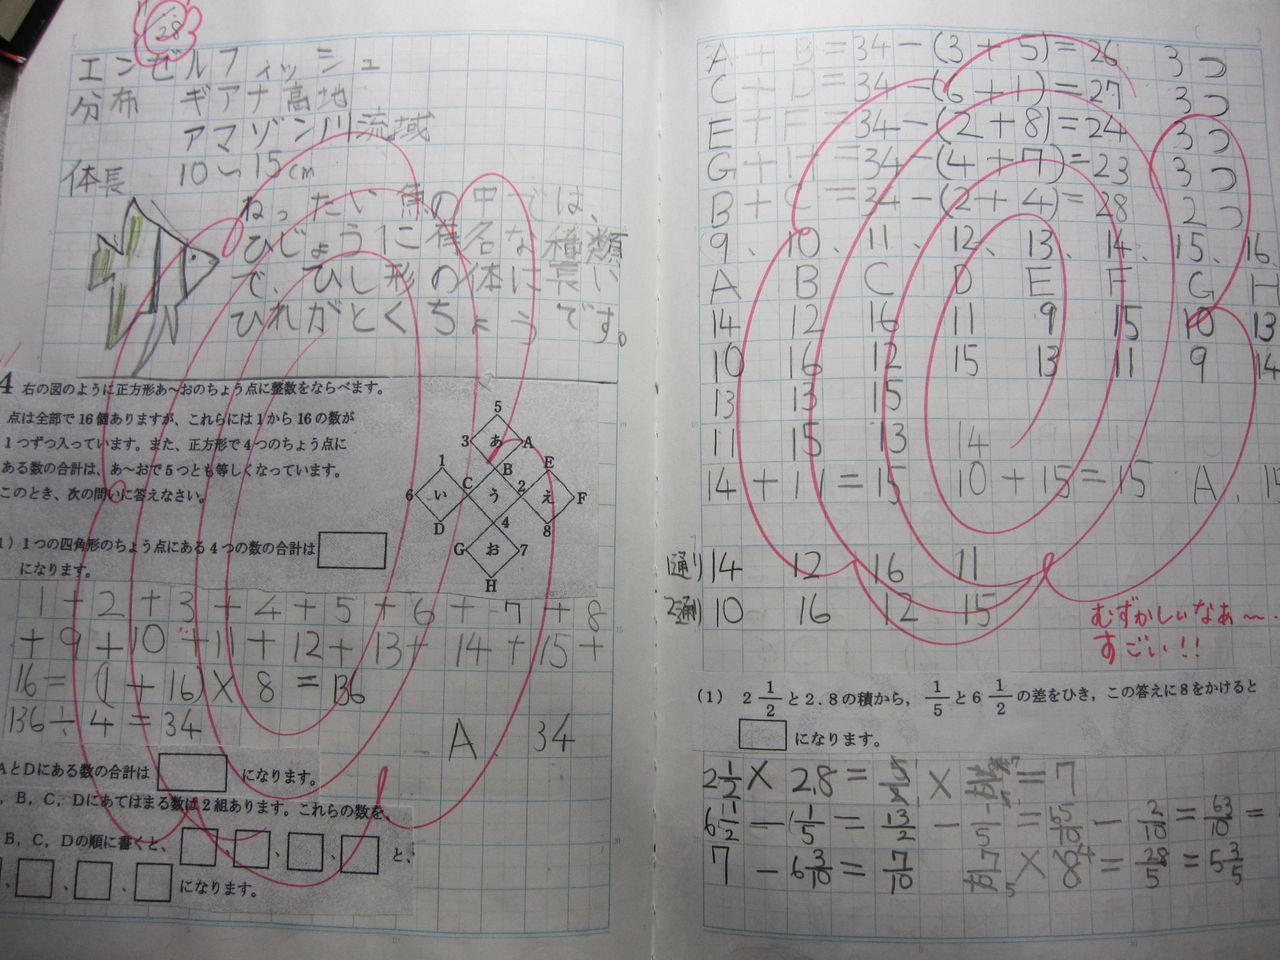 28
エンゼルフィッシュ
分布 ギアナ高地
アマゾン川流域
体長 10〜15cm
ねったい魚の中では、
ひじょうに有名な種類
で、ひし形の体に長い
ひれがとくちょうです。
4 右の図のように正方形あ～おのちょう点に整数をならべます。
点は全部で16個ありますが、これらには1から16の数が
1つずつ入っています。また、正方形で4つのちょう点に
ある数の合計は、あ～おで5つとも等しくなっています。
このとき、次の問いに答えなさい。
5
3 あ A
1 B E
6 い C う 2 え F
D 4 8
G お 7
H
1) 1つの四角形のちょう点にある4つの数の合計は
になります。
1+2+3+4+5+6+7+8
+9+10+11+12+13+14+15+
16=(1+16)×8=136
136÷4=34
A 34
AとDにある数の合計は になります。
, B, C, Dにあてはまる数は2組あります。これらの数を、
B, C, Dの順に書くと、 、 、 、 と、
、 、 、 になります。
A+B=34-(3+5)=26 3つ
C+D=34-(6+1)=27 3つ
E+F=34-(2+8)=24 3つ
G+H=34-(4+7)=23 3つ
B+C=34-(2+4)=28 2つ
9、10、11、12、13、14、15、16、
A B C D E F G H
14 12 16 11 9 15 10 13
10 16 12 15 13 11 9 14
13 13 15
11 15 13 14
14+11=15 10+15=15 A、
1通り) 14 12 16 11
2通り) 10 16 12 15
むずかしいなぁ〜・
すごい!!
(1) 2 1/2 と2.8の積から, 1/5 と6 1/2 の差をひき, この答えに8をかけると
になります。
2 1/2 × 2.8 = × = 7
6 1/2 - 1/5 = 13/2 - 1/5 = 65/10 - 2/10 = 63/10 =
7 - 6 3/10 = 7/10 7 × 8 = 28/5 = 5 3/5